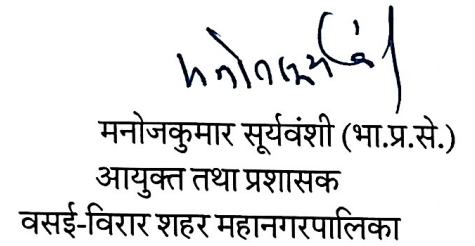 मनोजकुमार सूर्यवंशी (भा.प्र.से.)
आयुक्त तथा प्रशासक
वसई-विरार शहर महानगरपालिका